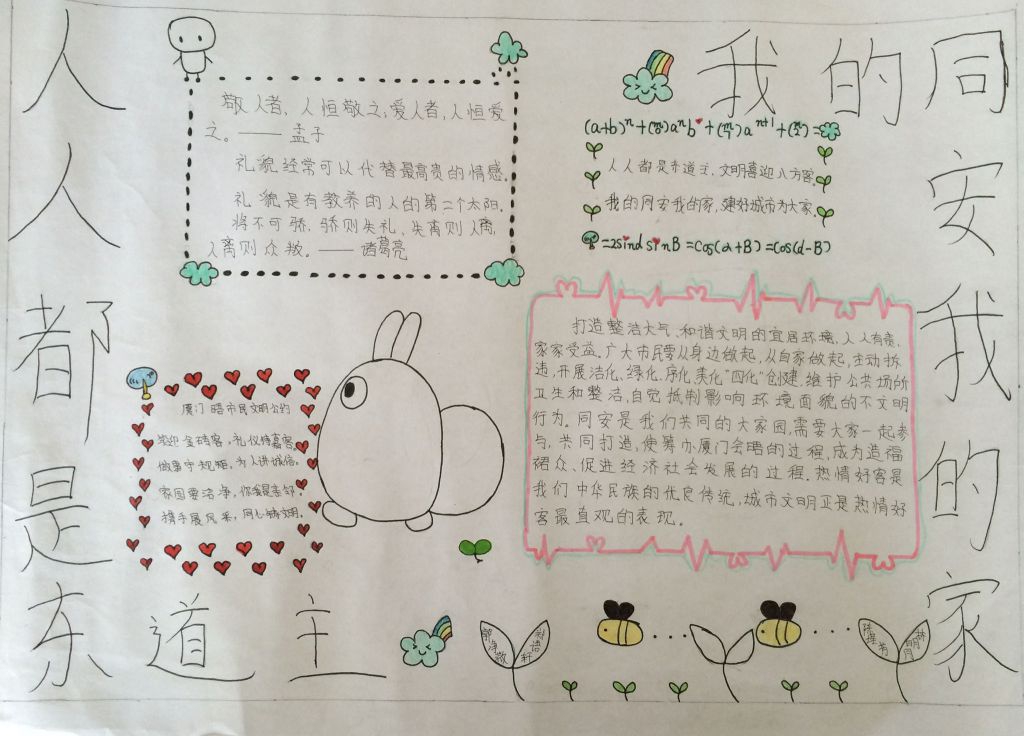 人人都是东道主
我的同安我的家
敬人者,人恒敬之;爱人者,人恒爱
之。——孟子
礼貌经常可以代替最高贵的情感。
礼貌是有教养的人的第二个太阳.
将不可骄,骄则失礼,失离则人离
人离则众叛。——诸葛亮
人人都是东道主,文明喜迎八方客.
我的同安我的家,建好城市为大家.
=2sindsinB=Cos(a+B)=Cos(d-B)
厦门 晤市民文明公约
礼仪待嘉宾.
为人讲诚信.
家园要洁净,你我是芳邻.
携手展风采,同心铸文明.
打造整洁大气、和谐文明的宜居环境,人人有责,
家家受益.广大市民要从身边做起,从自家做起,主动拆
违,开展洁化、绿化、序化、美化"四化"创建,维护公共场所
卫生和整洁,自觉抵制影响环境面貌的不文明
行为.同安是我们共同的大家园,需要大家一起参
与,共同打造,使筹办厦门会晤的过程,成为造福
裙众、促进经济社会发展的过程.热情好客是
我们中华民族的优良传统,城市文明正是热情好
客最直观的表现。